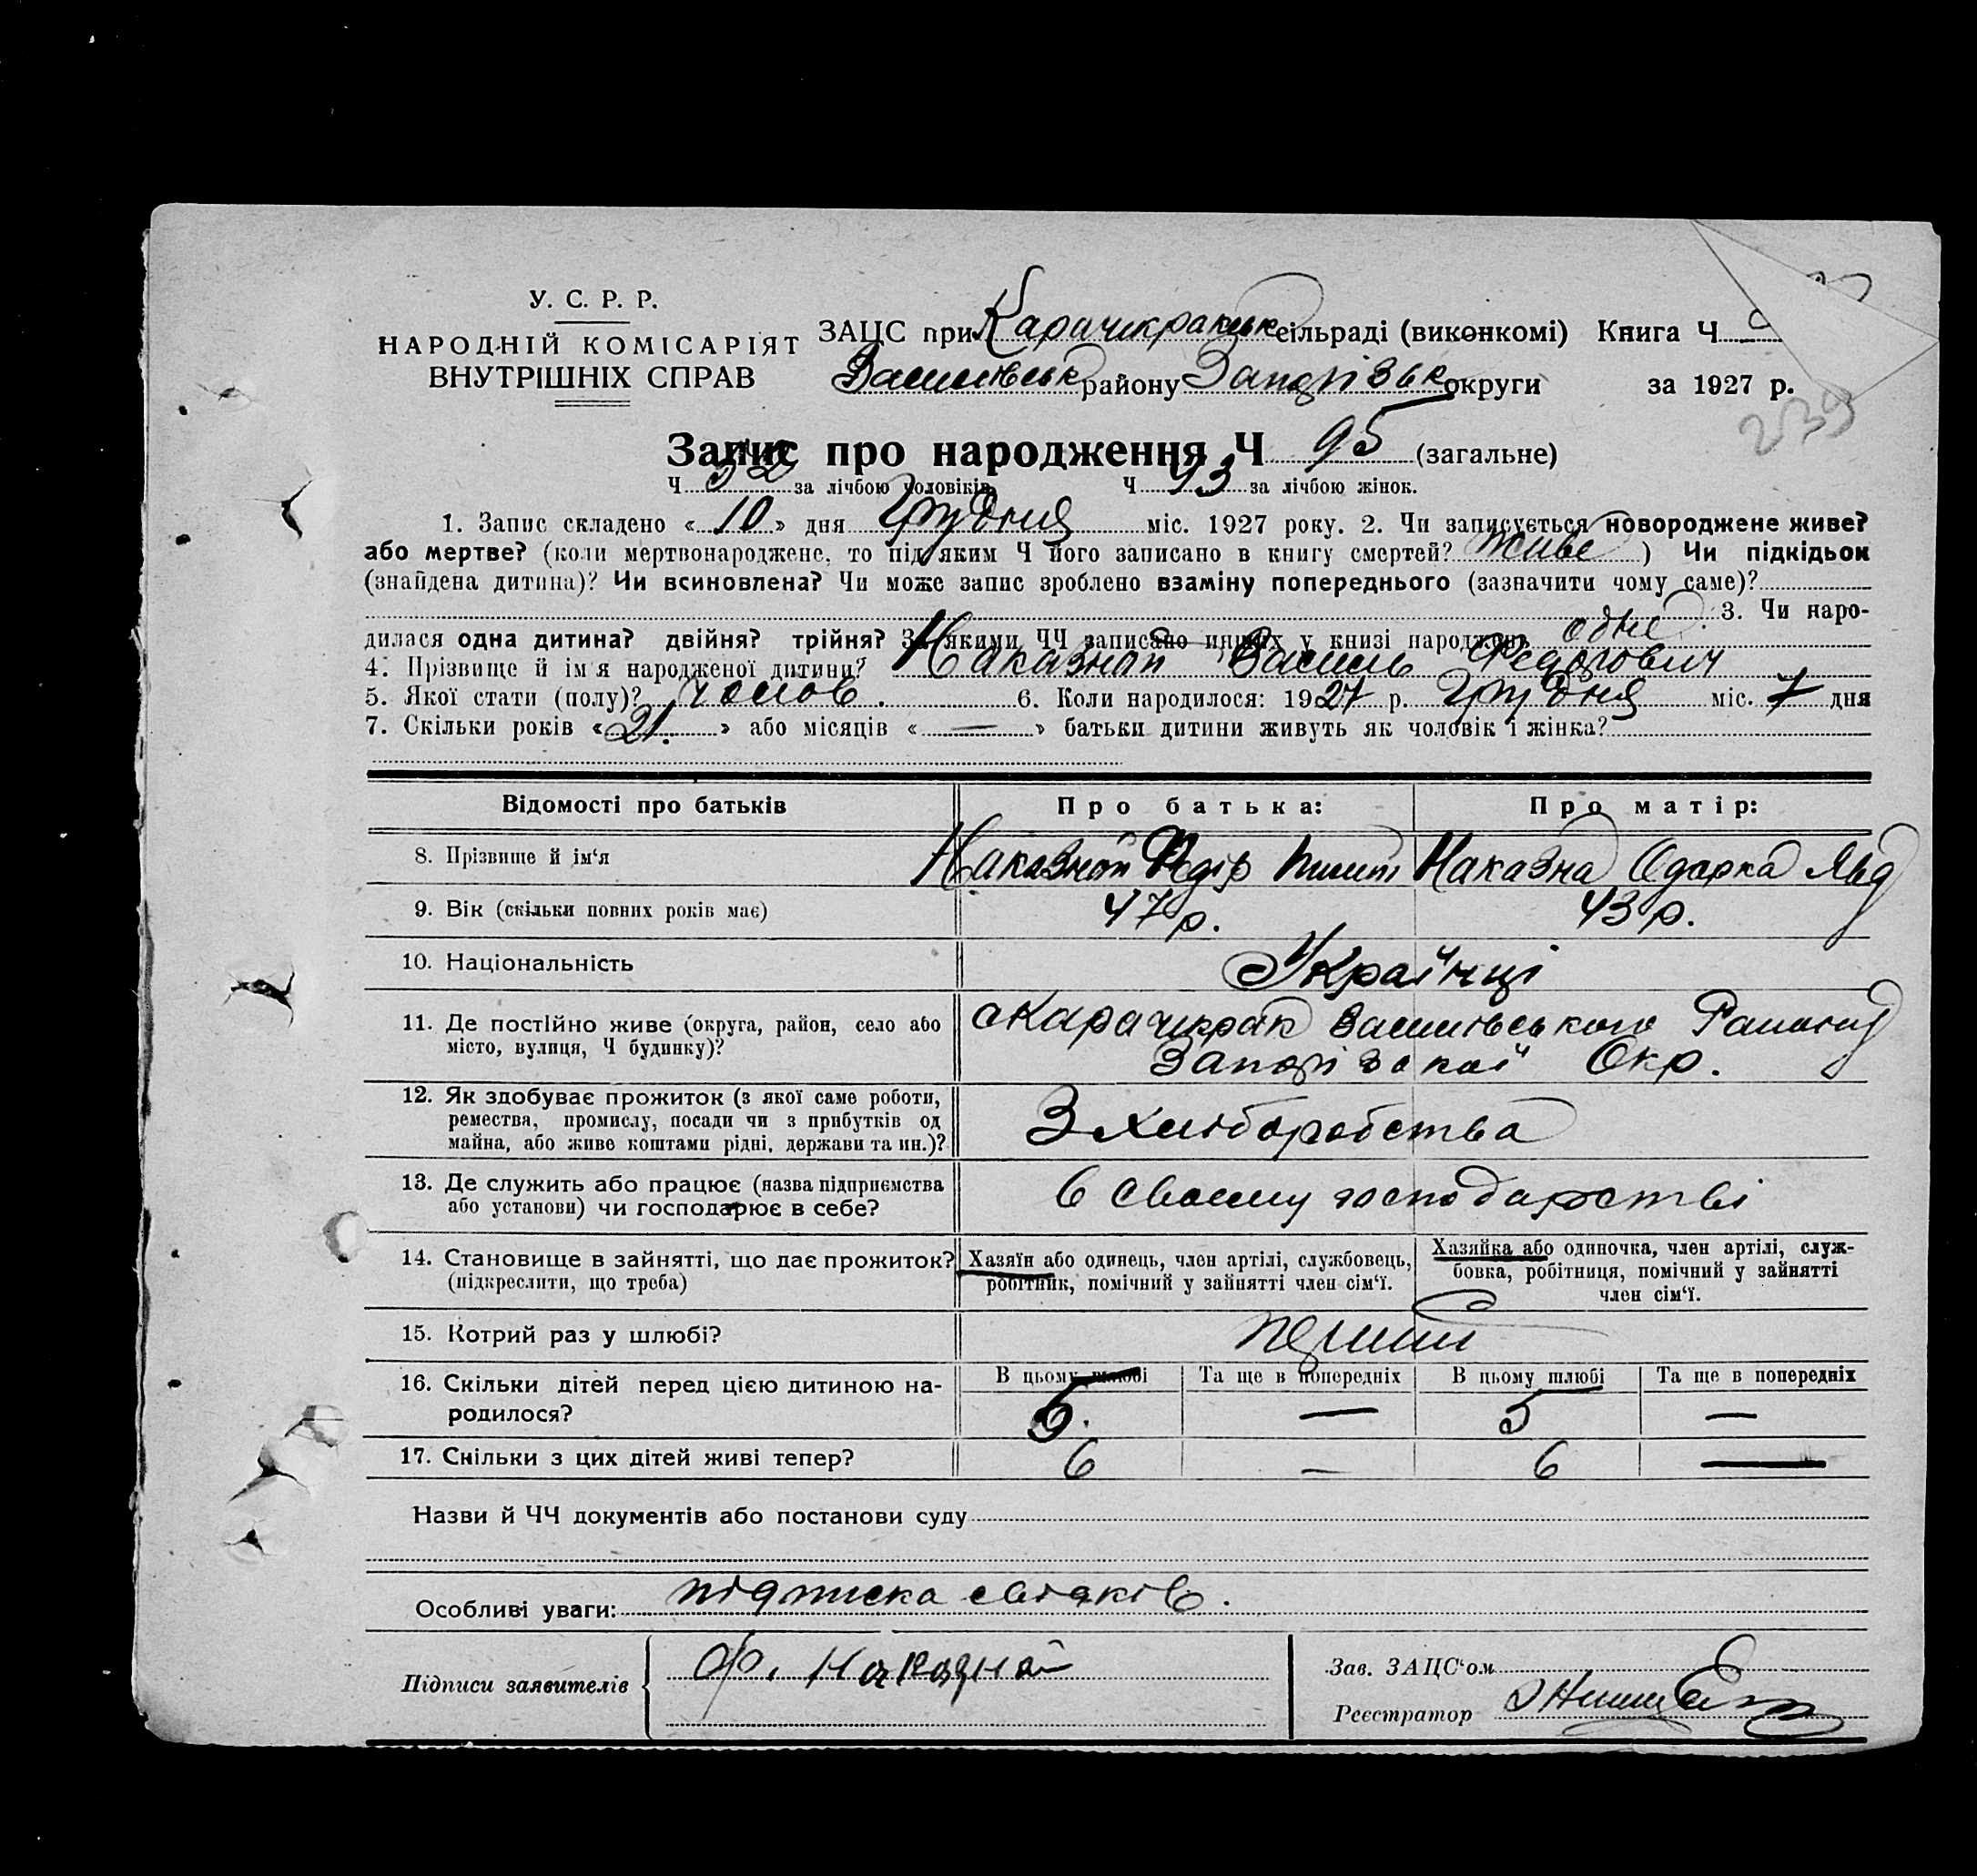 У. С. Р. Р.
НАРОДНІЙ КОМІСАРІЯТ
ВНУТРІШНІХ СПРАВ
ЗАЦС при Карачикракськ сільраді (виконкомі) Книга Ч
Василівськ району Запорізьк округи за 1927 р.
239
Запис про народження Ч 95 (загальне)
Ч 52 за лічбою чоловіків. Ч 43 за лічбою жінок.
1. Запис складено «10» дня Грудня міс. 1927 року. 2. Чи записується новороджене живе?
або мертве? (коли мертвонароджене, то під яким Ч його записано в книгу смертей? живе) Чи підкідьок
(знайдена дитина)? Чи всиновлена? Чи може запис зроблено взаміну попереднього (зазначити чому саме)?
3. Чи наро-
дилася одна дитина? двійня? трійня? За якими ЧЧ записано инших у книзі народжень одне.
4. Прізвище й ім'я народженої дитини? Наказной Василь Федорович
5. Якої стати (полу)? чолов. 6. Коли народилося: 1927 р. Грудня міс. 7 дня
7. Скільки років «21.» або місяців «—» батьки дитини живуть як чоловік і жінка?
Відомості про батьків Про батька: Про матір:
8. Прізвище й ім'я Наказной Федір Наказна Одарка
9. Вік (скільки повних років має) 47 р. 43 р.
10. Національність Українці
11. Де постійно живе (округа, район, село або
місто, вулиця, Ч будинку)?
с Карачикрак Василівського Району
Запорізської Окр.
12. Як здобуває прожиток (з якої саме роботи,
ремества, промислу, посади чи з прибутків од
майна, або живе коштами рідні, держави та ин.)?
З хліборобства
13. Де служить або працює (назва підприємства
або установи) чи господарює в себе?
в своєму господарстві
14. Становище в зайнятті, що дає прожиток?
(підкреслити, що треба)
Хазяїн або одинець, член артілі, службовець,
робітник, помічний у зайнятті член сім'ї.
Хазяйка або одиночка, член артілі, служ-
бовка, робітниця, помічний у зайнятті
член сім'ї.
15. Котрий раз у шлюбі? перший
16. Скільки дітей перед цією дитиною на-
родилося?
В цьому шлюбі Та ще в попередніх В цьому шлюбі Та ще в попередніх
5. — 5 —
17. Скільки з цих дітей живі тепер? 6 — 6 —
Назви й ЧЧ документів або постанови суду
Особливі уваги: підписка свідків.
Підписи заявителів Ф. Наказной
Зав. ЗАЦС'ом
Реєстратор